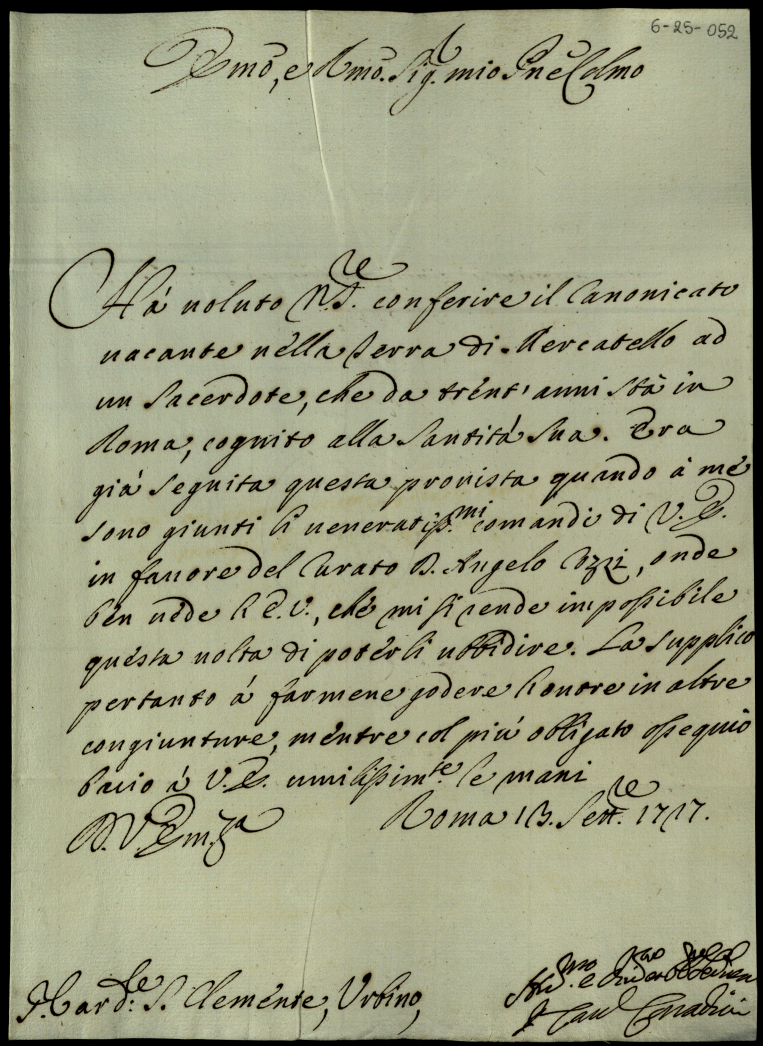 6-25-052
Emo, e Rmo. Sig.r mio Pne Colmo
Hà uoluto N. Sre. conferire il Canonicato
uacante nella Terra di Mercatello ad
un Sacerdote, che da trent' anni stà in
Roma, cognito alla Santità Sua. Era
già seguita questa prouista quando à me
sono giunti li ueneratiss.mi comandi di V. E.
in fauore del Curato D. Angelo, onde
ben uede l'E.V., che mi si rende impossibile
questa uolta di poterli ubbidire. La supplico
pertanto á farmene godere l'onore in altre
congiunture, mentre col più obligato ossequio
bacio à V. E. umilissim.te le mani
D. V. Em.za Roma 13. Sett.re 1717.
Hu.mo e
F. Car.le S. Clemente, Urbino, F. Card. Corradini